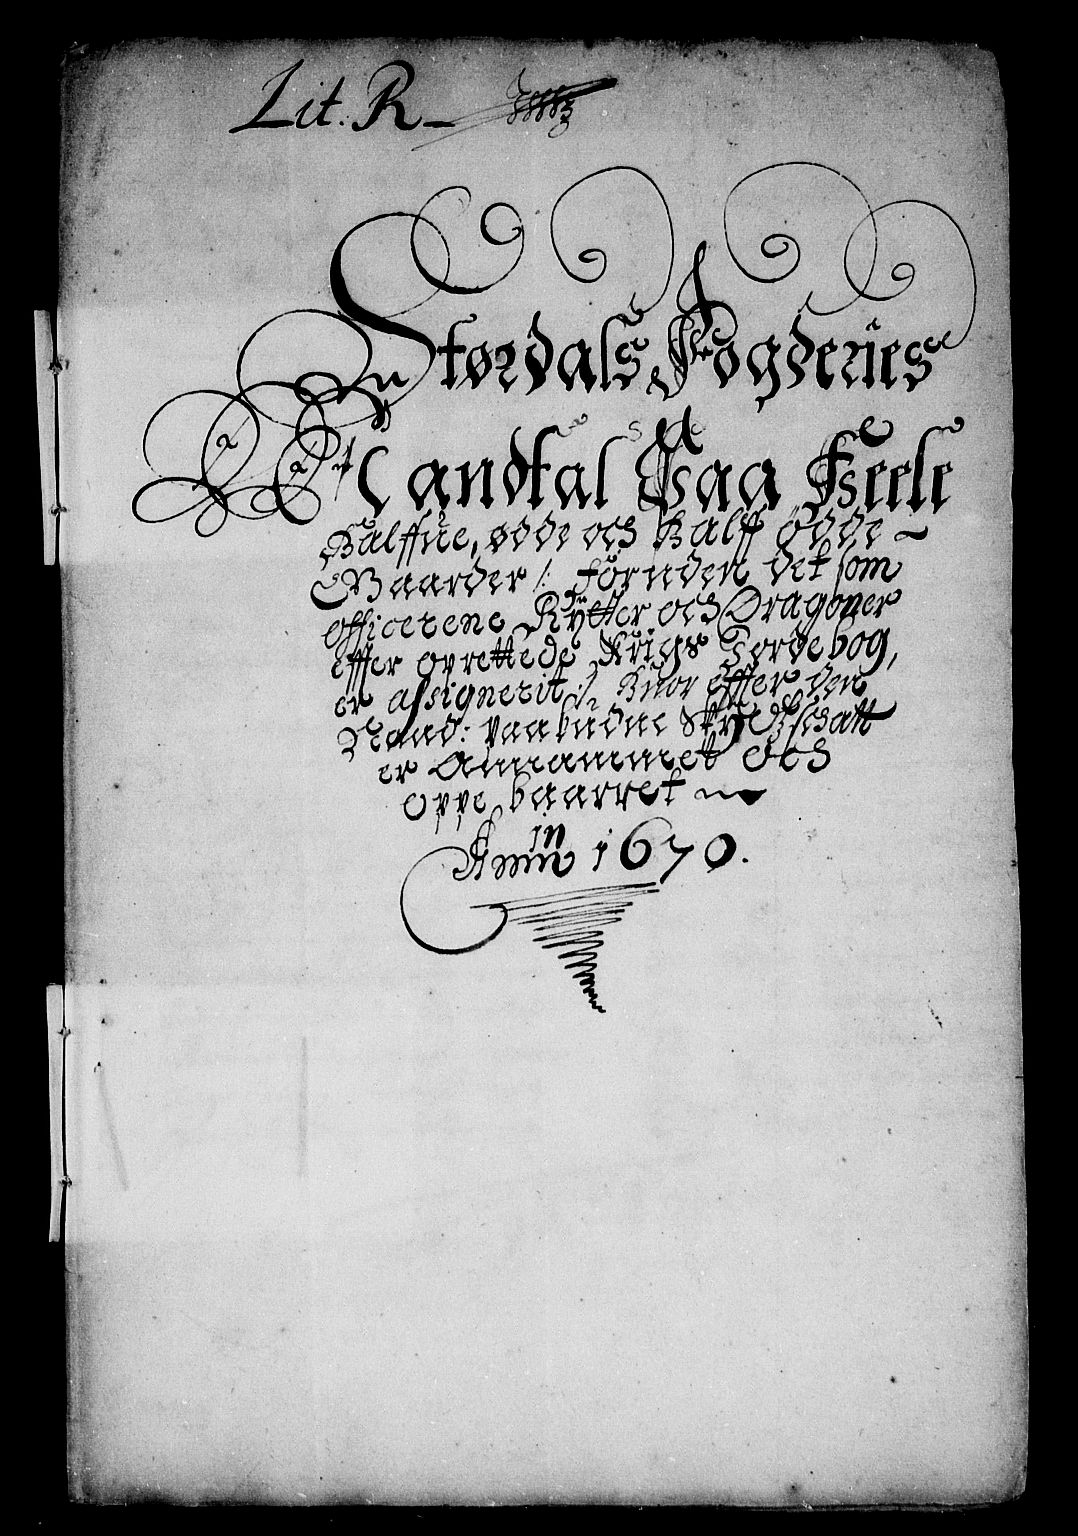 Lit. R
Størdals Fogderies
Mandtal Paa Heele
Halffue, ødde och Halff Ødde
Gaarder /: Foruden det som
officerene Rytter och Dragoner
effter oprettede Krigs Jordebog,
er assignerit :/ Huor effter den
Naad: paabudne Skydtzschatt
er Annammet och
oppe baarret
in
Anno 1670.